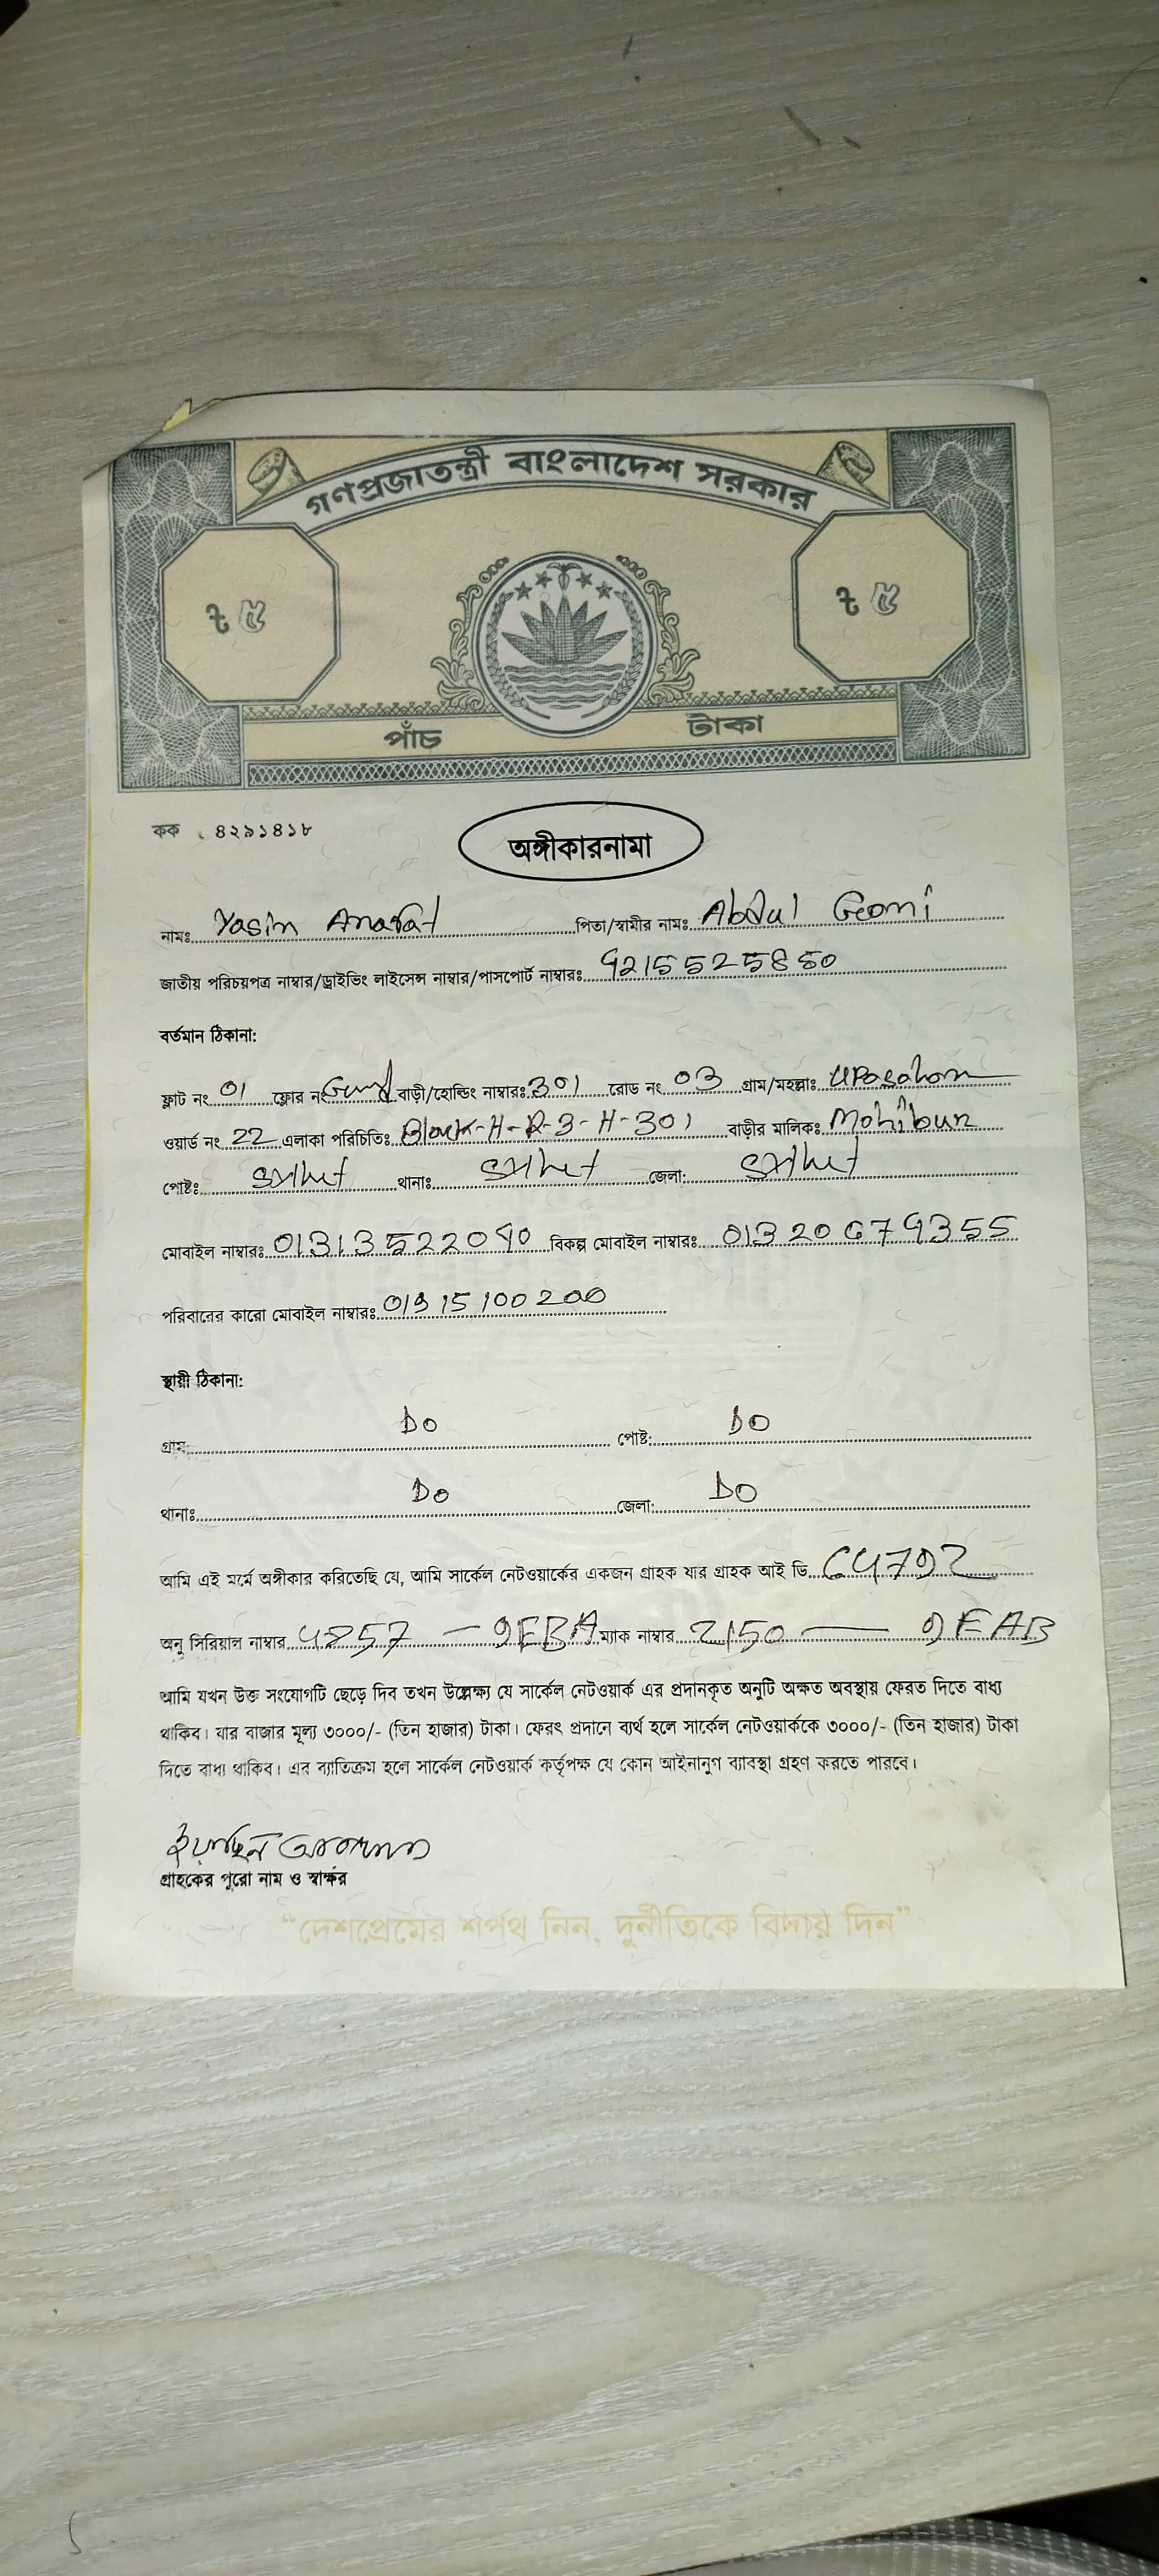 গণপ্রজাতন্ত্রী বাংলাদেশ সরকার
৳ ৫ ৳ ৫
পাঁচ টাকা
কক ৪২৯১৪১৮
অঙ্গীকারনামা
নামঃ Yasin Arafat পিতা/স্বামীর নামঃ Abdul Goni
জাতীয় পরিচয়পত্র নাম্বার/ড্রাইভিং লাইসেন্স নাম্বার/পাসপোর্ট নাম্বারঃ 9215525850
বর্তমান ঠিকানা:
ফ্লাট নং 01 ফ্লোর নং বাড়ী/হোল্ডিং নাম্বারঃ 301 রোড নং 03 গ্রাম/মহল্লাঃ UPosohom
ওয়ার্ড নং 22 এলাকা পরিচিতিঃ Block-H-R-3-H-301 বাড়ীর মালিকঃ Mohibun
পোষ্টঃ Sylhet থানাঃ Sylhet জেলা: Sylhet
মোবাইল নাম্বারঃ 01313522090 বিকল্প মোবাইল নাম্বারঃ 01320679355
পরিবারের কারো মোবাইল নাম্বারঃ 01915100200
স্থায়ী ঠিকানা:
গ্রাম: DO পোষ্ট: DO
থানাঃ DO জেলা: DO
আমি এই মর্মে অঙ্গীকার করিতেছি যে, আমি সার্কেল নেটওয়ার্কের একজন গ্রাহক যার গ্রাহক আই ডি C4792
অনু সিরিয়াল নাম্বার 4857 — 9EBA ম্যাক নাম্বার 2150 — 9EAB
আমি যখন উক্ত সংযোগটি ছেড়ে দিব তখন উল্লেক্ষ্য যে সার্কেল নেটওয়ার্ক এর প্রদানকৃত অনুটি অক্ষত অবস্থায় ফেরত দিতে বাধ্য
থাকিব। যার বাজার মূল্য ৩০০০/- (তিন হাজার) টাকা। ফেরৎ প্রদানে ব্যর্থ হলে সার্কেল নেটওয়ার্ককে ৩০০০/- (তিন হাজার) টাকা
দিতে বাধ্য থাকিব। এর ব্যাতিক্রম হলে সার্কেল নেটওয়ার্ক কর্তৃপক্ষ যে কোন আইনানুগ ব্যাবস্থা গ্রহণ করতে পারবে।
ইয়াছিন আরাফাত
গ্রাহকের পুরো নাম ও স্বাক্ষর
“দেশপ্রেমের শপথ নিন, দুর্নীতিকে বিদায় দিন”